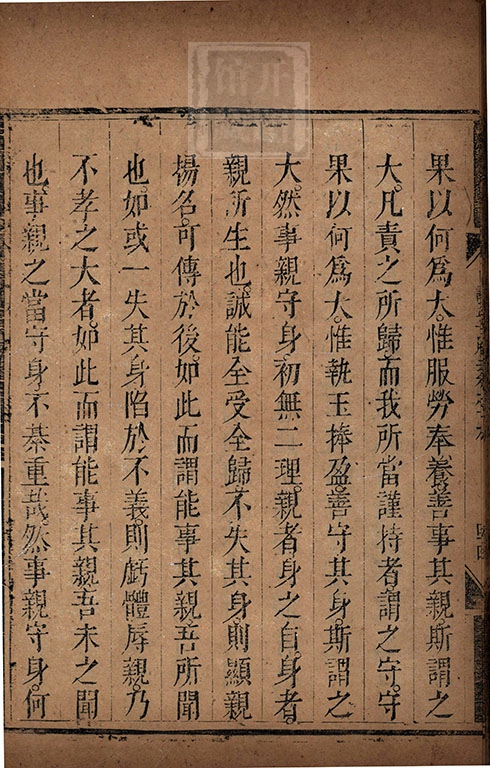 果以何爲大。惟服勞奉養善事其親。斯謂之
大。凡責之所歸。而我所當謹持者謂之守。守
果以何爲大。惟執玉捧盈善守其身。斯謂之
大。然事親守身初無二理。親者身之自。身者
親所生也。誠能全受全歸。不失其身。則顯親
揚名。可傳於後。如此而謂能事其親。吾所聞
也。如或一失其身。陷於不義。則虧體辱親。乃
不孝之大者。如此而謂能事其親。吾未之聞
也。事親之當守身。不綦重哉。然事親守身。何